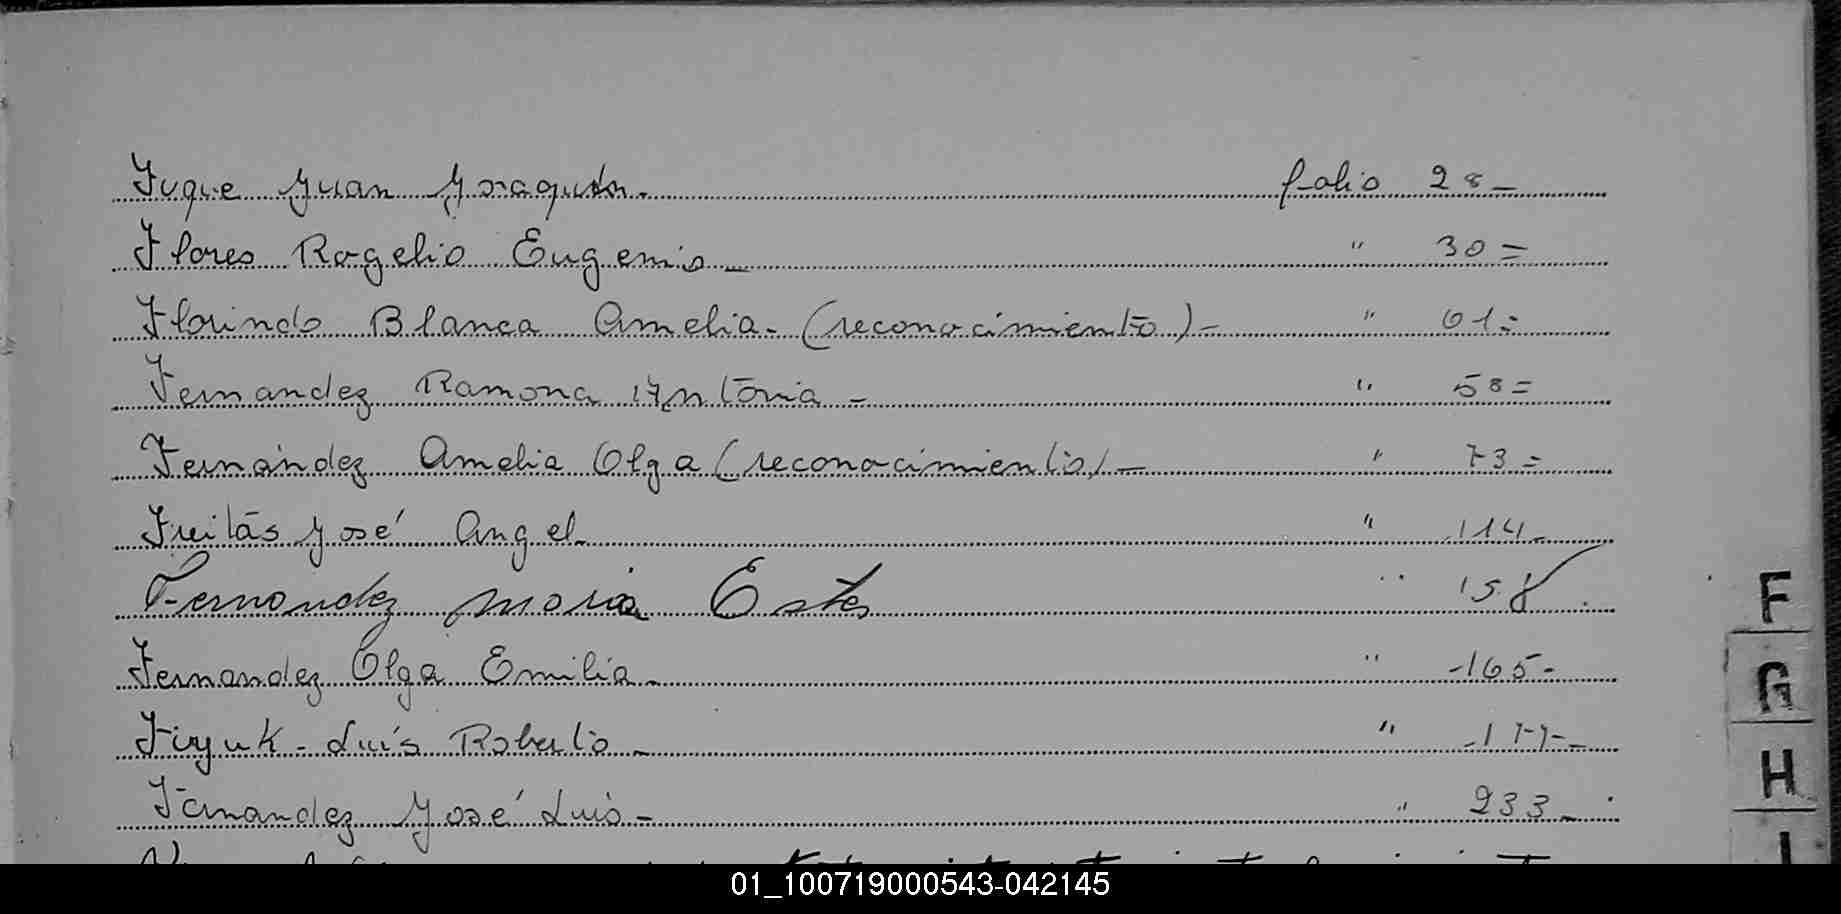 Fuque Juan Joaquin. folio 28 -
Flores Rogelio Eugenio - " 30 =
Florindo Blanca Amelia - (reconocimiento) - " 61 =
Fernandez Ramona Antonia - " 58 =
Fernandez Amelia Olga (reconocimiento) - " 73 =
Freitas José Angel - " 114 -
Fernandez Maria Ester " 158
Fernandez Olga Emilia - " - 165 -
Fiyuk - Luis Roberto - " - 177 -
Fernandez José Luis - " 233 -
F
G
H
I
01_100719000543-042145